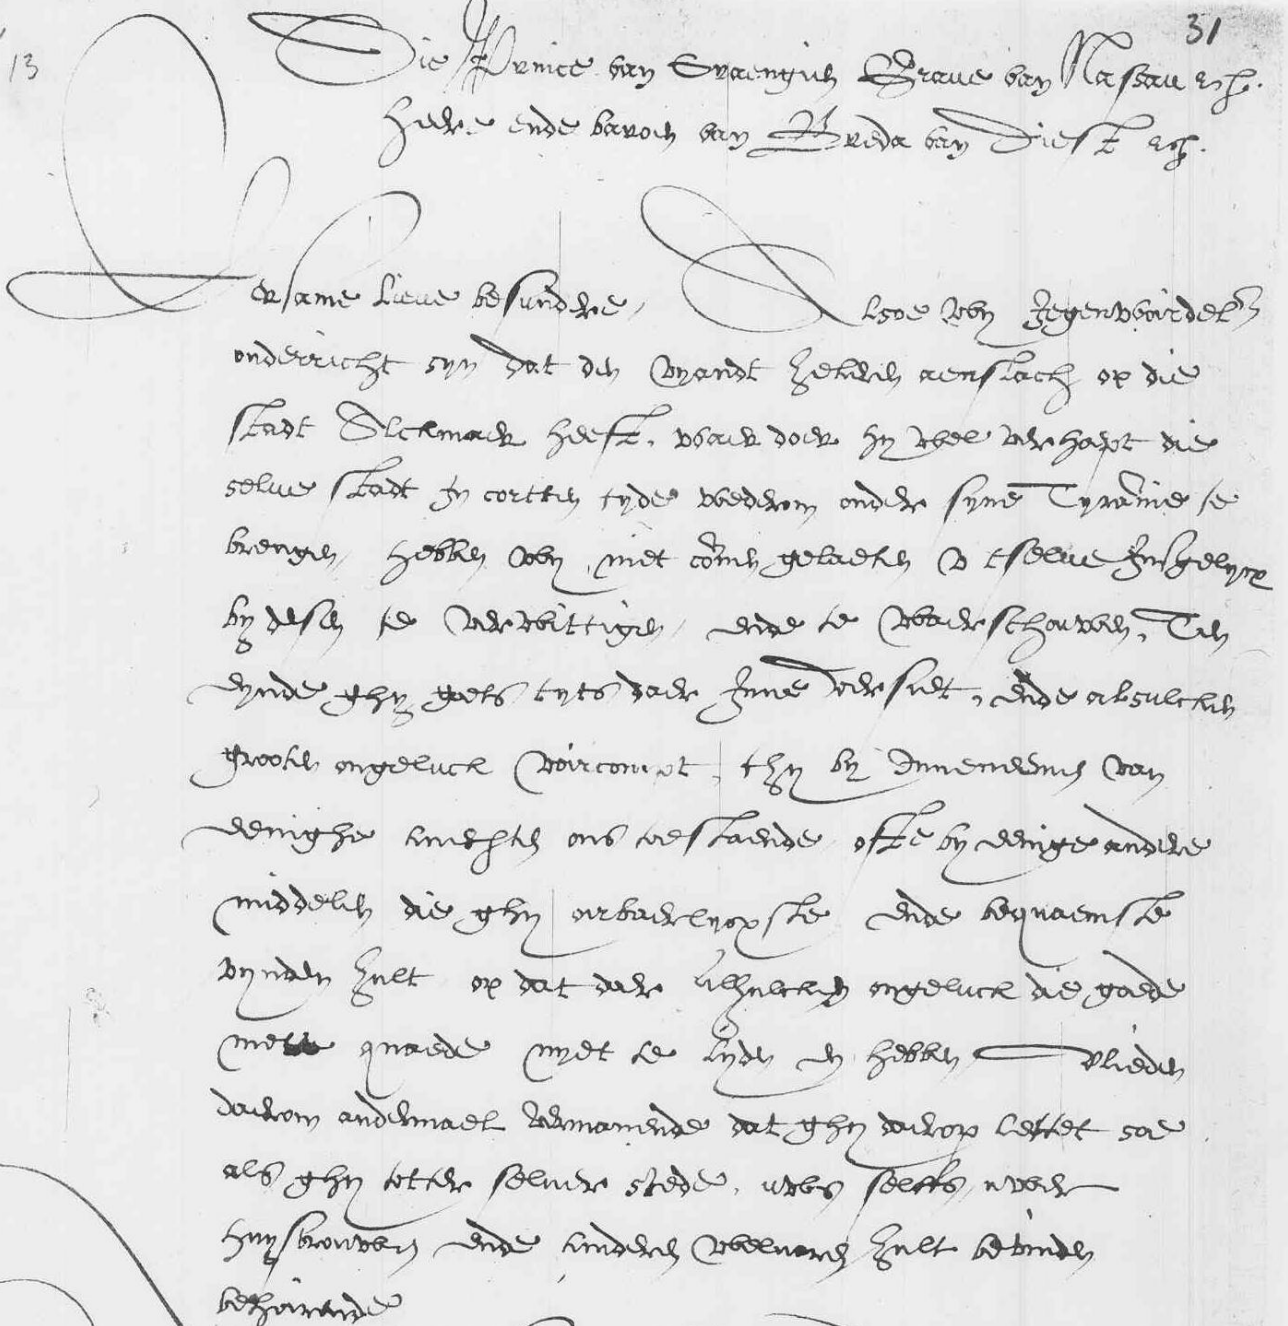 31
13
Die Prince van Oraengien Grave van Nassau etc.
Heere ende baroen van Breda van Diest etc.
Eersame lieve besundere, Alsoe wy Jegenwoirdel.
onderricht syn dat den vyandt zekeren aenslach op die
stadt Alckmaer heeft, waer doer hy wel verhopt die
selve stadt in cortten tyde wederom onder syne Tyrannie te
brengen, hebben wy niet connen gelaeten u tselve Insgelycx
by desen te verwittigen, ende te waerschouwen, Ten
eynde ghy goets tyts daer Inne versiet, ende alsulcken
grooten ongeluck voircompt, thy by Innemens van
eenighe knechten ons toestaende ofte by eenige andere
middelen die ghy oirbaerlycxste ende bequaemste
vynden zult op dat daer alzulcken ongeluck die goede
mette quaede nyet te lyden en hebben, Ulieden
daerom andermael vermanende dat ghy daerop lettet soe
als ghy totter selver stede, uwes selffs, uwer
huysvrouwen ende kinderen welvaren zult bevinden
behoirende